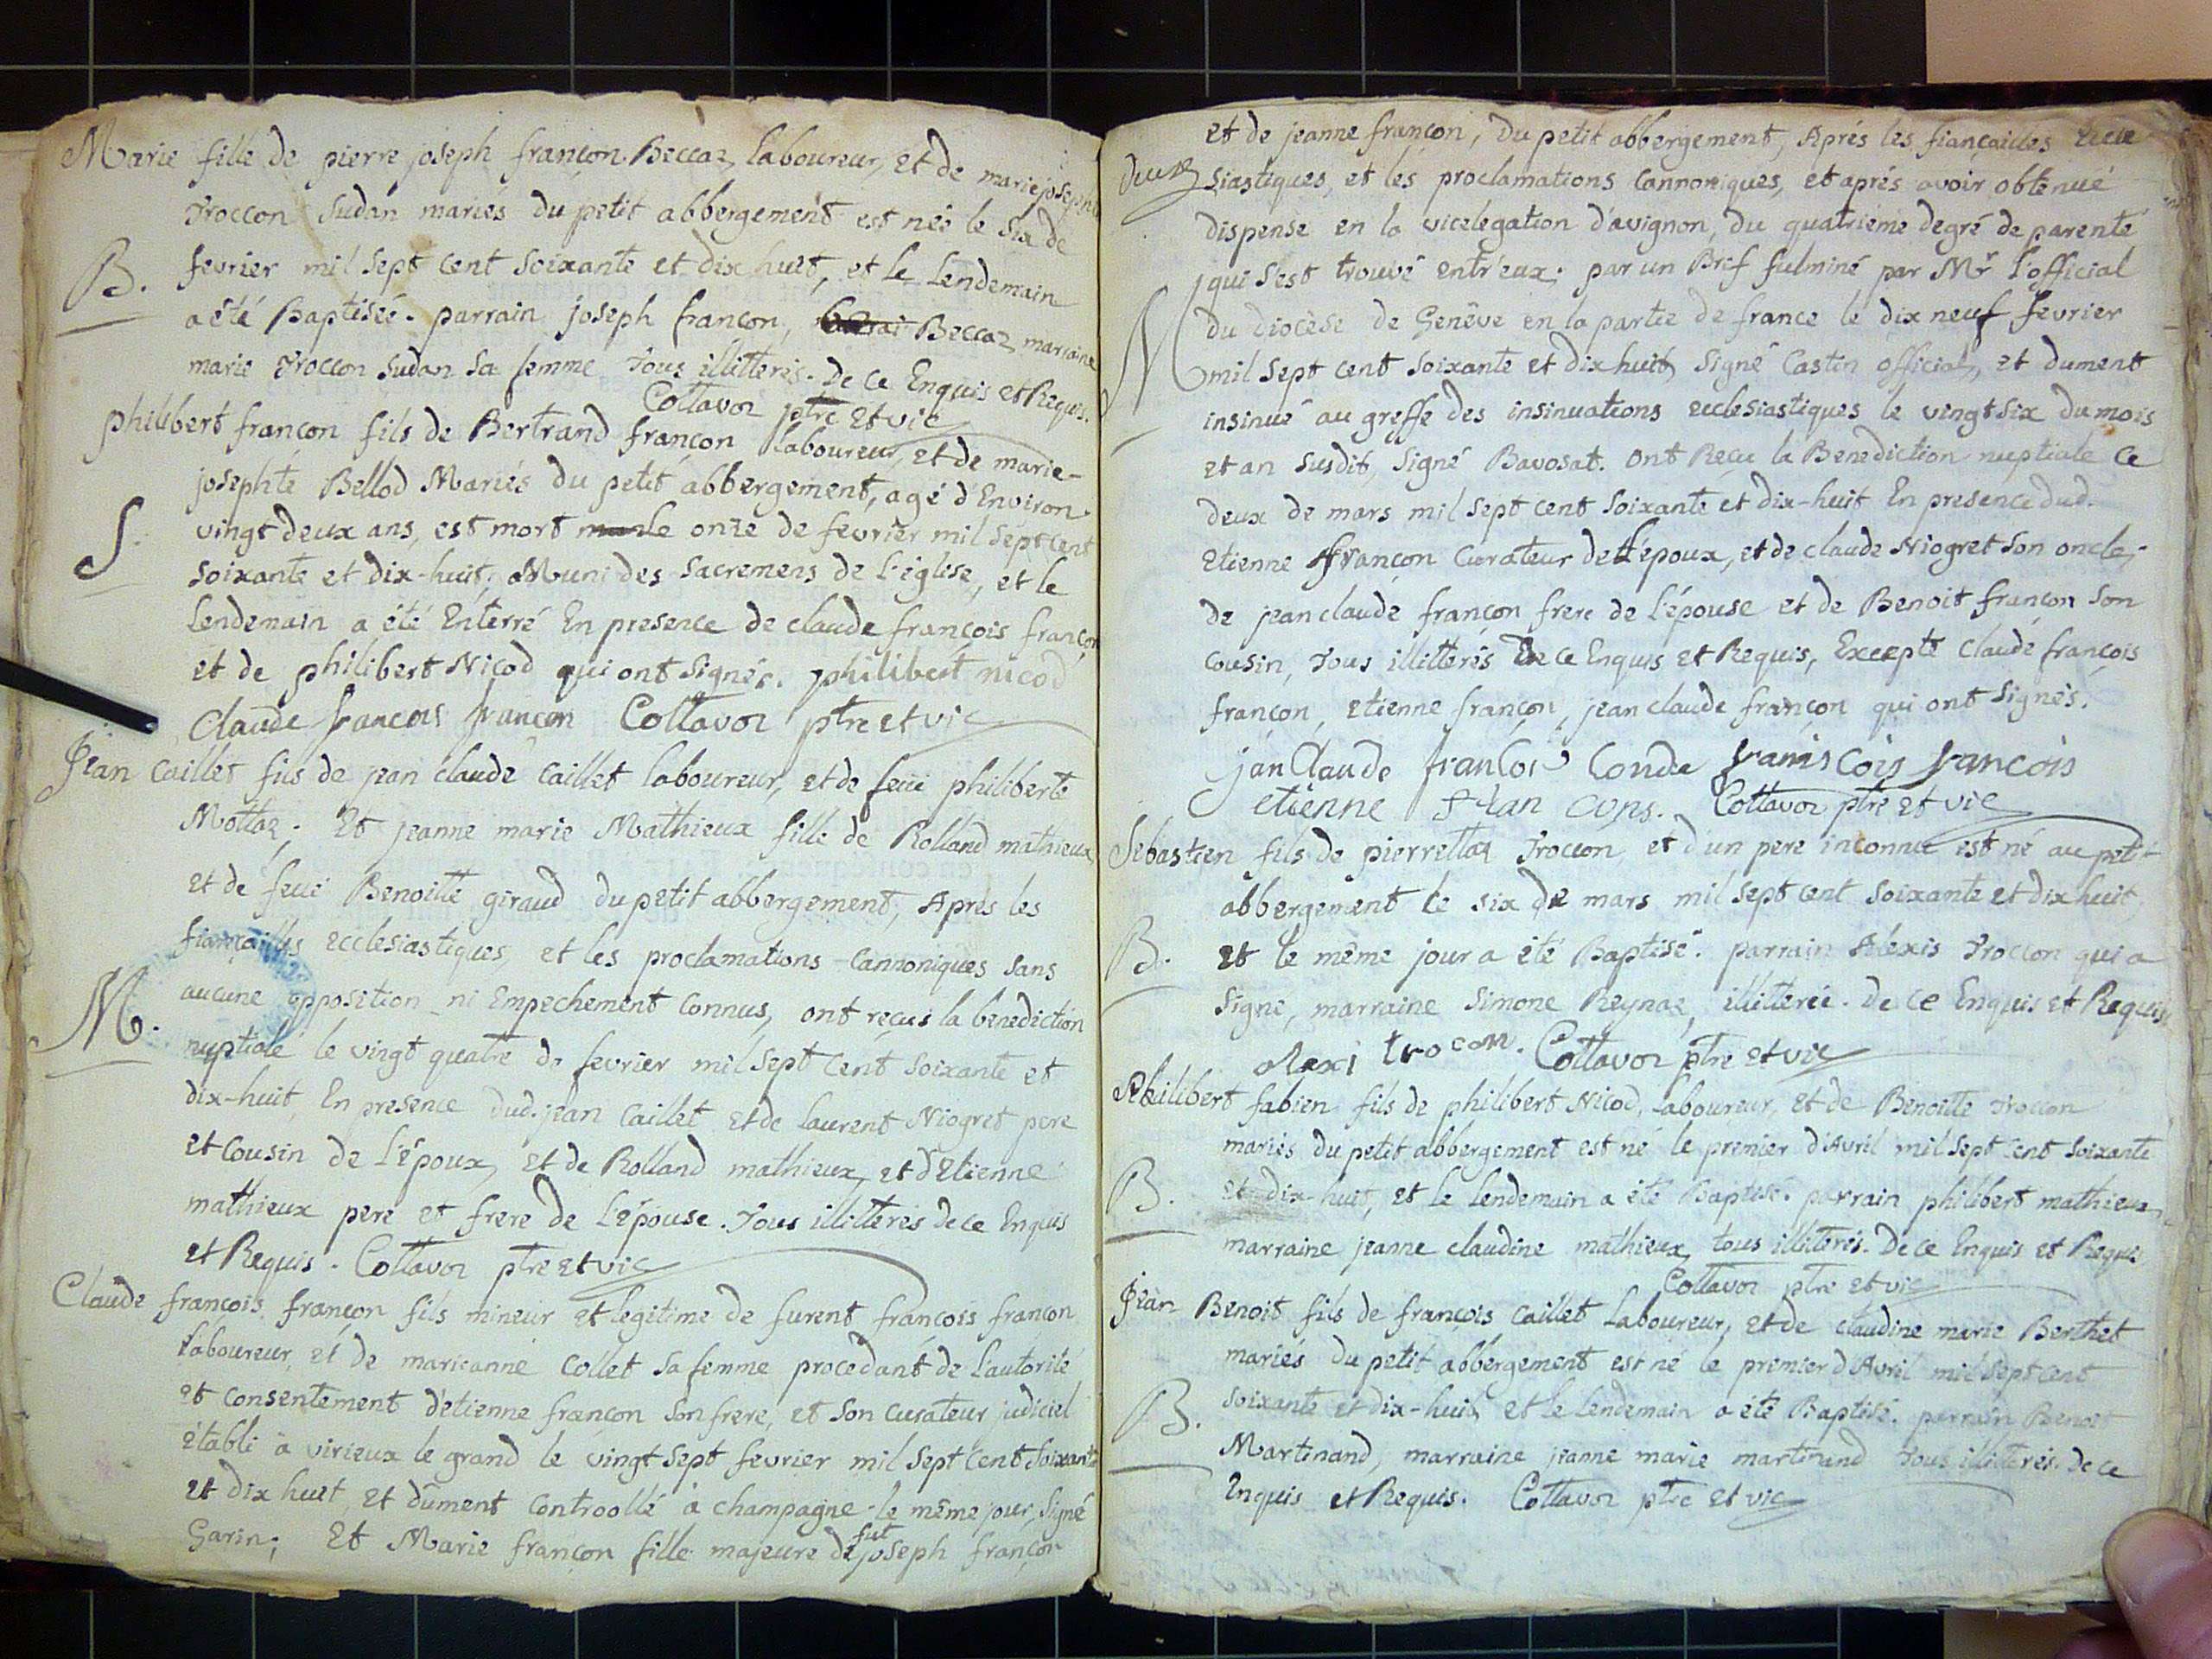 Marie fille de pierre joseph françon Beccaz, laboureur, et de marie josephte
Troccon Sudan mariés du petit abbergement est née le six de
B. fevrier mil sept cent soixante et dix huit, et le Lendemain
a été Baptisée. parrain joseph françon, Beccaz, marraine
marie Troccon Sudan sa femme Tous illitterés. De ce Enquis et Requis.
Collavoz ptre et vic
philibert françon fils de Bertrand françon laboureur, et de marie-
josephte Bellod Mariés du petit abbergement, agé d'Environ
vingt deux ans, est mort le onze de fevrier mil sept cent
S. soixante et dix-huit, Muni des Sacremens de L'église, et le
Lendemain a été Enterré En presence de claude françois françon
et de philibert Nicod qui ont signés. philibert nicod
Claude francois françon Collavoz ptre et vic
Jean Caillet fils de jean claude Caillet laboureur, et de feue philiberte
Mottaz. Et jeanne marie Mathieux fille de Rolland mathieux
et de feue Benoitte giraud du petit abbergement, Aprés les
fiançailles ecclesiastiques, et les proclamations Cannoniques sans
aucune opposition ni Empechement connus, ont reçus la benediction
M. nuptiale le vingt quatre de fevrier mil sept cent soixante et
dix-huit, En presence dud. jean Caillet et de laurent Niogret pere
et Cousin de L'époux, et de Rolland mathieux, et d'Etienne
mathieux pere et frere de L'épouse. Tous illitterés de ce Enquis
et Requis. Collavoz ptre et vic
Claude françois françon fils mineur et legitime de furent françois françon
laboureur, et de marieanne Collet sa femme procedant de L'autorité
et consentement d'etienne françon son frere, et son curateur judiciel
établi à virieux le grand le vingt sept fevrier mil sept cent soixante
et dix huit, et dûment Controollé à champagne le même jour, signé
Garin; Et Marie françon fille majeure de fut joseph françon
et de jeanne françon, du petit abbergement, Aprés les fiançailles Eccle
siastiques, et les proclamations Cannoniques, et aprés avoir obtenué
dispense en la vicelegation d'avignon, du quatrieme degré de parenté
qui s'est trouvé entr'eux. par un Bref fulminé par Mr. L'official
M du diocèse de Genêve en la partie de france le dix neuf fevrier
mil sept cent soixante et dix huit, signé Castin official, et dument
insinué au greffe des insinuations ecclesiastiques le vingt six du mois
et an susdit, signé Bavosat. Ont Reçu la Benediction nuptiale ce
deux de mars mil sept cent soixante et dix-huit En presence dud.
Etienne françon Curateur de L'époux, et de claude Niogret son oncle,
de jean claude françon frere de L'épouse et de Benoit françon son
cousin, Tous illitterés De ce Enquis et Requis, Excepté claude françois
françon, etienne françon, jean claude françon qui ont signés.
jan Claude francois
etienne Collavoz ptre et vic
Sebastien fils de pierrettaz Troccon, et d'un pere inconnu est né au petit
abbergement le six de mars mil sept cent soixante et dix huit,
B. et le même jour a été Baptisé. parrain Aléxis Troccon qui a
signé, marraine Simone Reynaz, illiterée. De ce Enquis et Requis
alexi trocon. Collavoz ptre et vic
Philibert fabien fils de philibert Nicod, laboureur, et de Benoitte Troccon
mariés du petit abbergement est né le premier d'Avril mil sept cent soixante
B. et dix-huit, et le lendemain a été Baptisé. parrain philibert mathieux,
marraine jeanne claudine mathieux, tous illiterés. De ce Enquis et Requis
Collavoz ptre et vic
Jean Benoit fils de françois Caillet Laboureur, et de claudine marie Berthet
mariés du petit abbergement est né le premier d'Avril mil sept cent
B. soixante et dix-huit, et le lendemain a été Baptisé. parrain Benoit
Martinand, marraine jeanne marie martinand Tous illitterés. De ce
Enquis et Requis. Collavoz ptre et vic